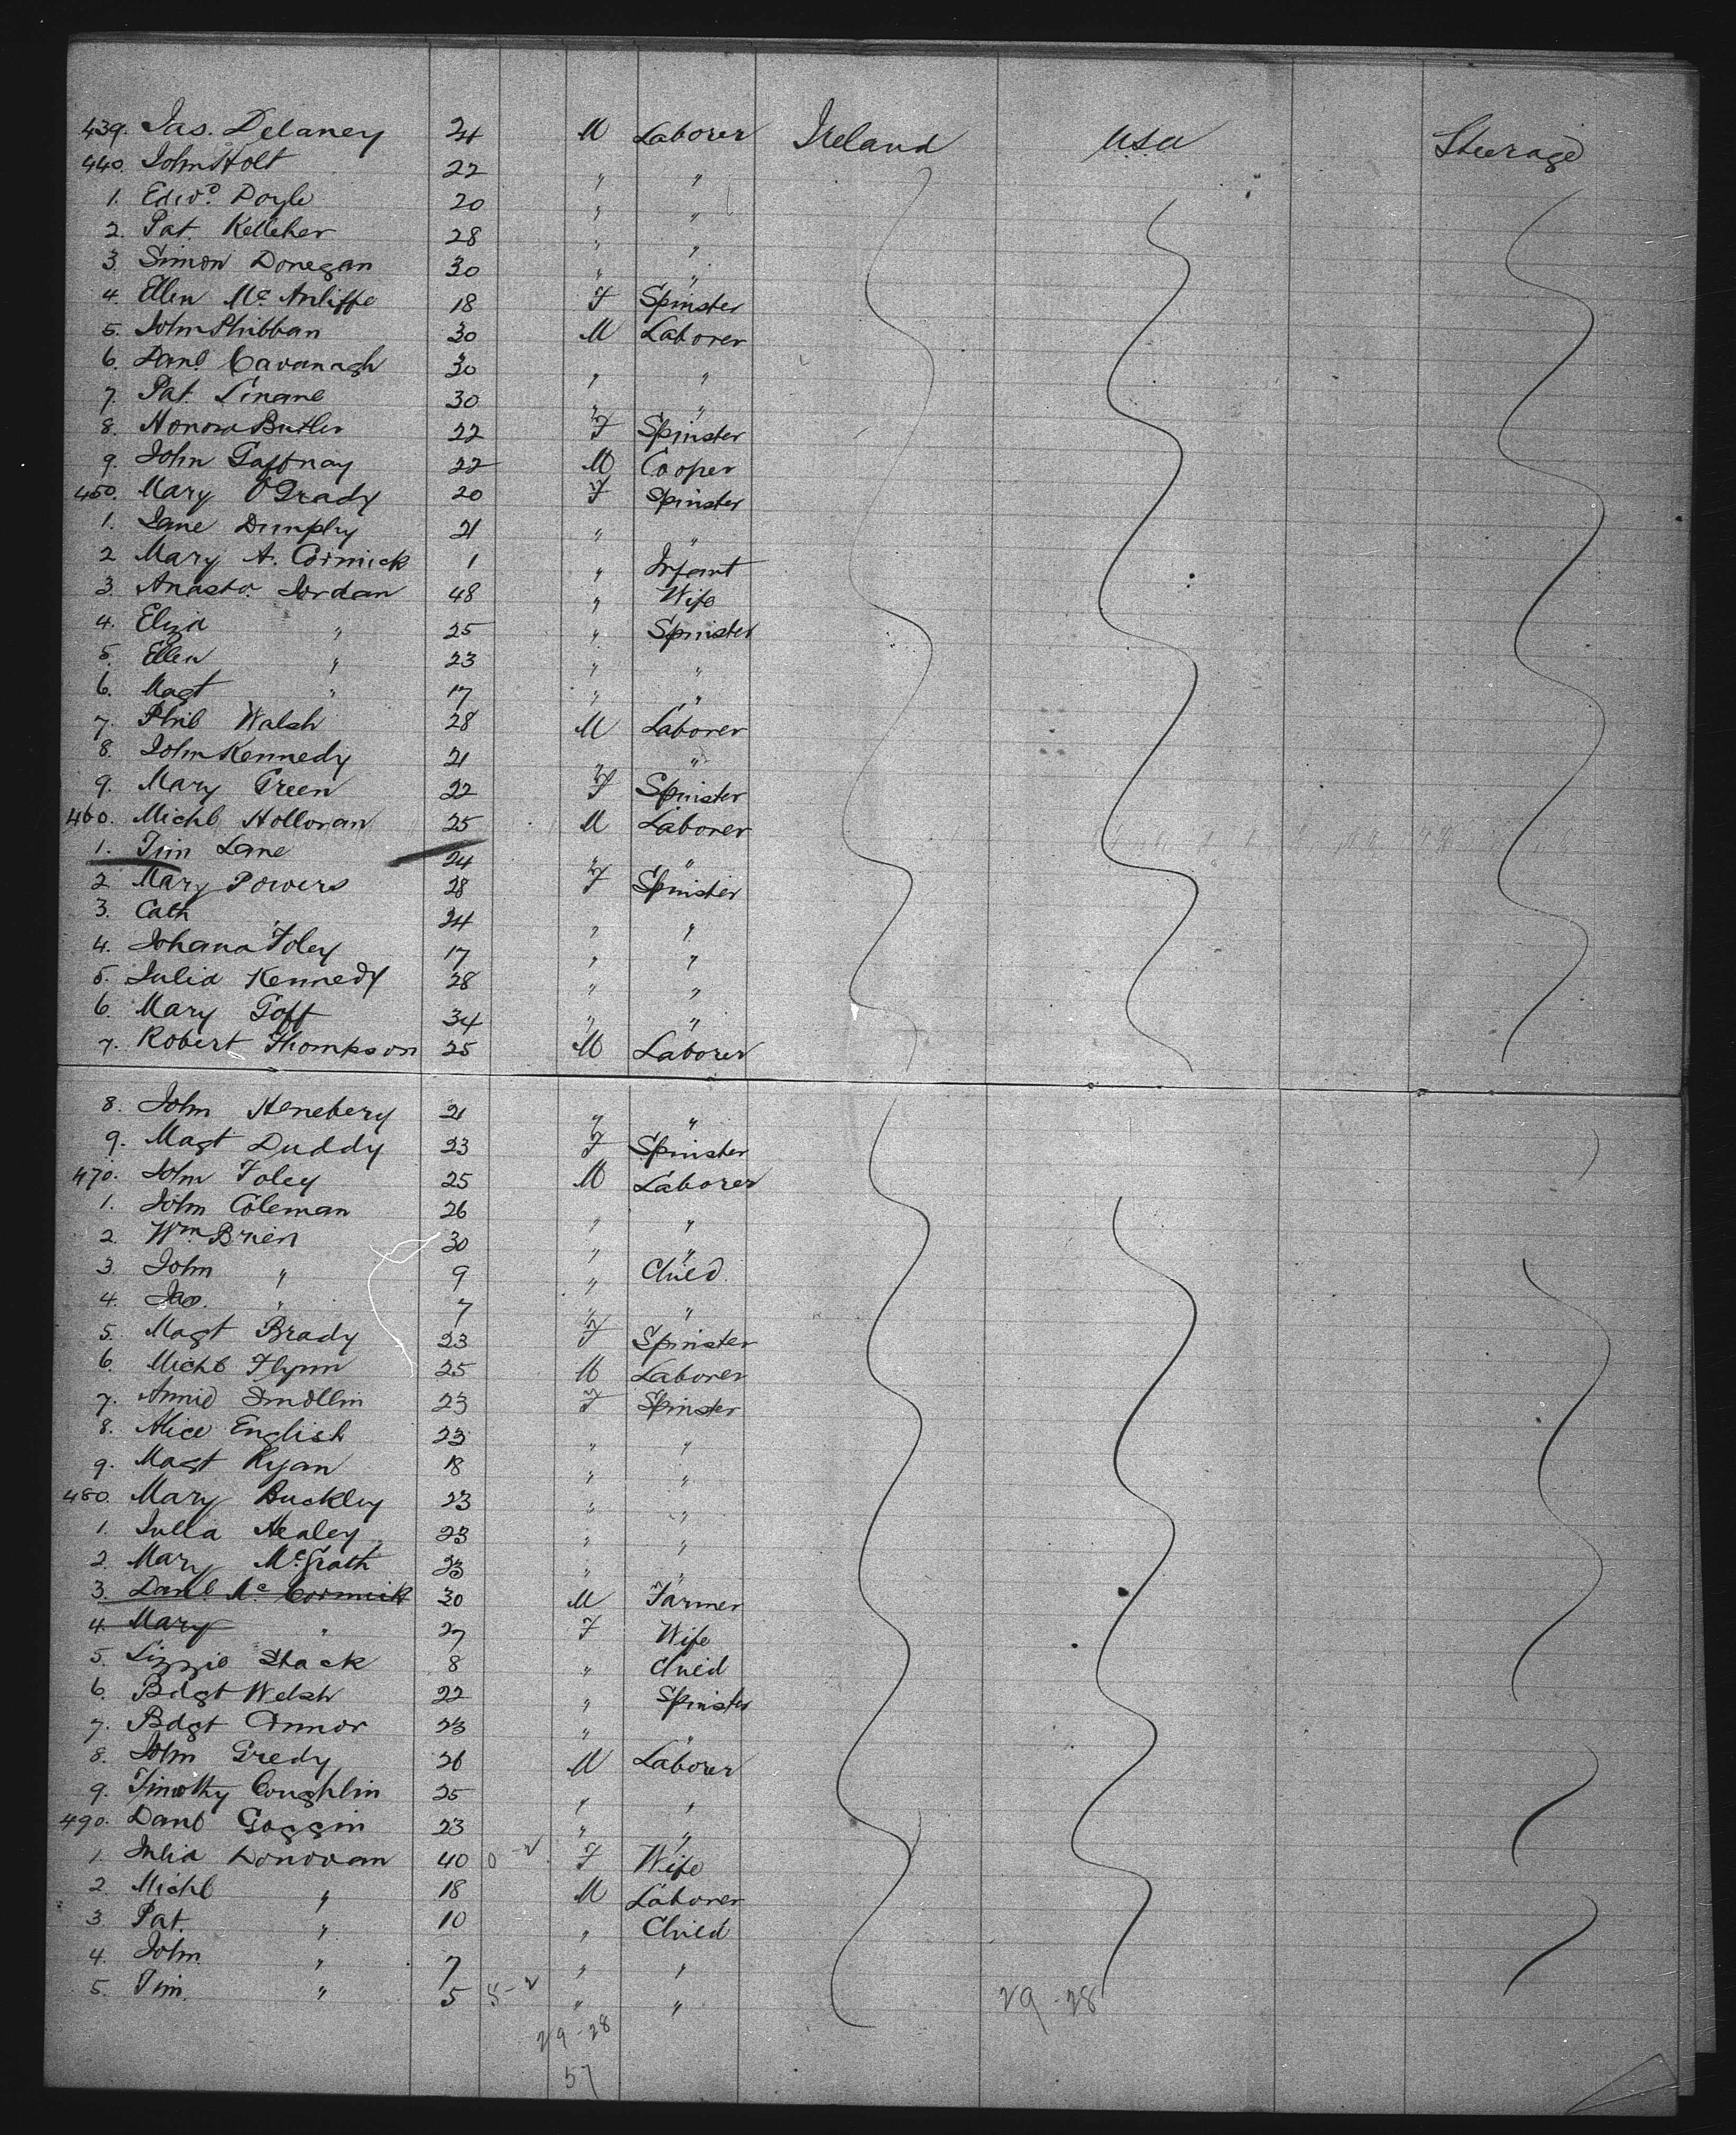 439. Jas. Delaney 24 M Laborer Ireland USA Steerage
440. John Holt 22 " "
1. Edwd Doyle 20 " "
2. Pat. Kelleher 28 " "
3. Simon Donegan 30 " "
4. Ellen Mc Anliffe 18 F Spinster
5. John Phibban 30 M Laborer
6. Danl Cavanagh 30 " "
7. Pat. Linane 30 " "
8. Honora Butler 22 F Spinster
9. John Gaffnay 22 M Cooper
450. Mary O'Grady 20 F Spinster
1. Jane Dumphy 21 " "
2 Mary A. Cormick 1 " Infant
3. Anasta. Jordan 48 " Wife
4. Eliza " 25 " Spinster
5. Ellen " 23 " "
6. Magt " 17 " "
7. Phil Walsh 28 M Laborer
8. John Kennedy 21 " "
9. Mary Green 22 F Spinster
460. Michl Holloran 25 M Laborer
1. Tim Lane 24 " "
2 Mary Powers 28 F Spinster
3. Cath " 24 " "
4. Johana Foley 17 " "
5. Julia Kennedy 28 " "
6. Mary Goff 34 " "
7. Robert Thompson 25 M Laborer
8. John Henebery 21 " "
9. Magt Duddy 23 F Spinster
470. John Foley 25 M Laborer
1. John Coleman 26 " "
2. Wm Brien 30 " "
3. John " 9 " Child
4. Jas. " 7 " "
5. Magt Brady 23 F Spinster
6. Michl Flynn 25 M Laborer
7. Annie 23 F Spinster
8. Alice English 23 " "
9. Magt Ryan 18 " "
480. Mary Buckley 23 " "
1. Julia Healey 23 " "
2. Mary McGrath 23 " "
3. Danl. Mc Cormick 30 M Farmer
4. Mary " 27 F Wife
5. Lizzie Stack 8 " Child
6. Bdgt Welsh 22 " Spinster
7. Bdgt Connor 23 " "
8. John Gredy 26 M Laborer
9. Timothy Coughlin 25 " "
490. Danl Goggin 23 " "
1. Julia Donovan 40 F Wife
2. Michl " 18 M Laborer
3. Pat. " 10 " Child
4. John " 7 " "
5. Tim. " 5 " " 29-28
29-28
57